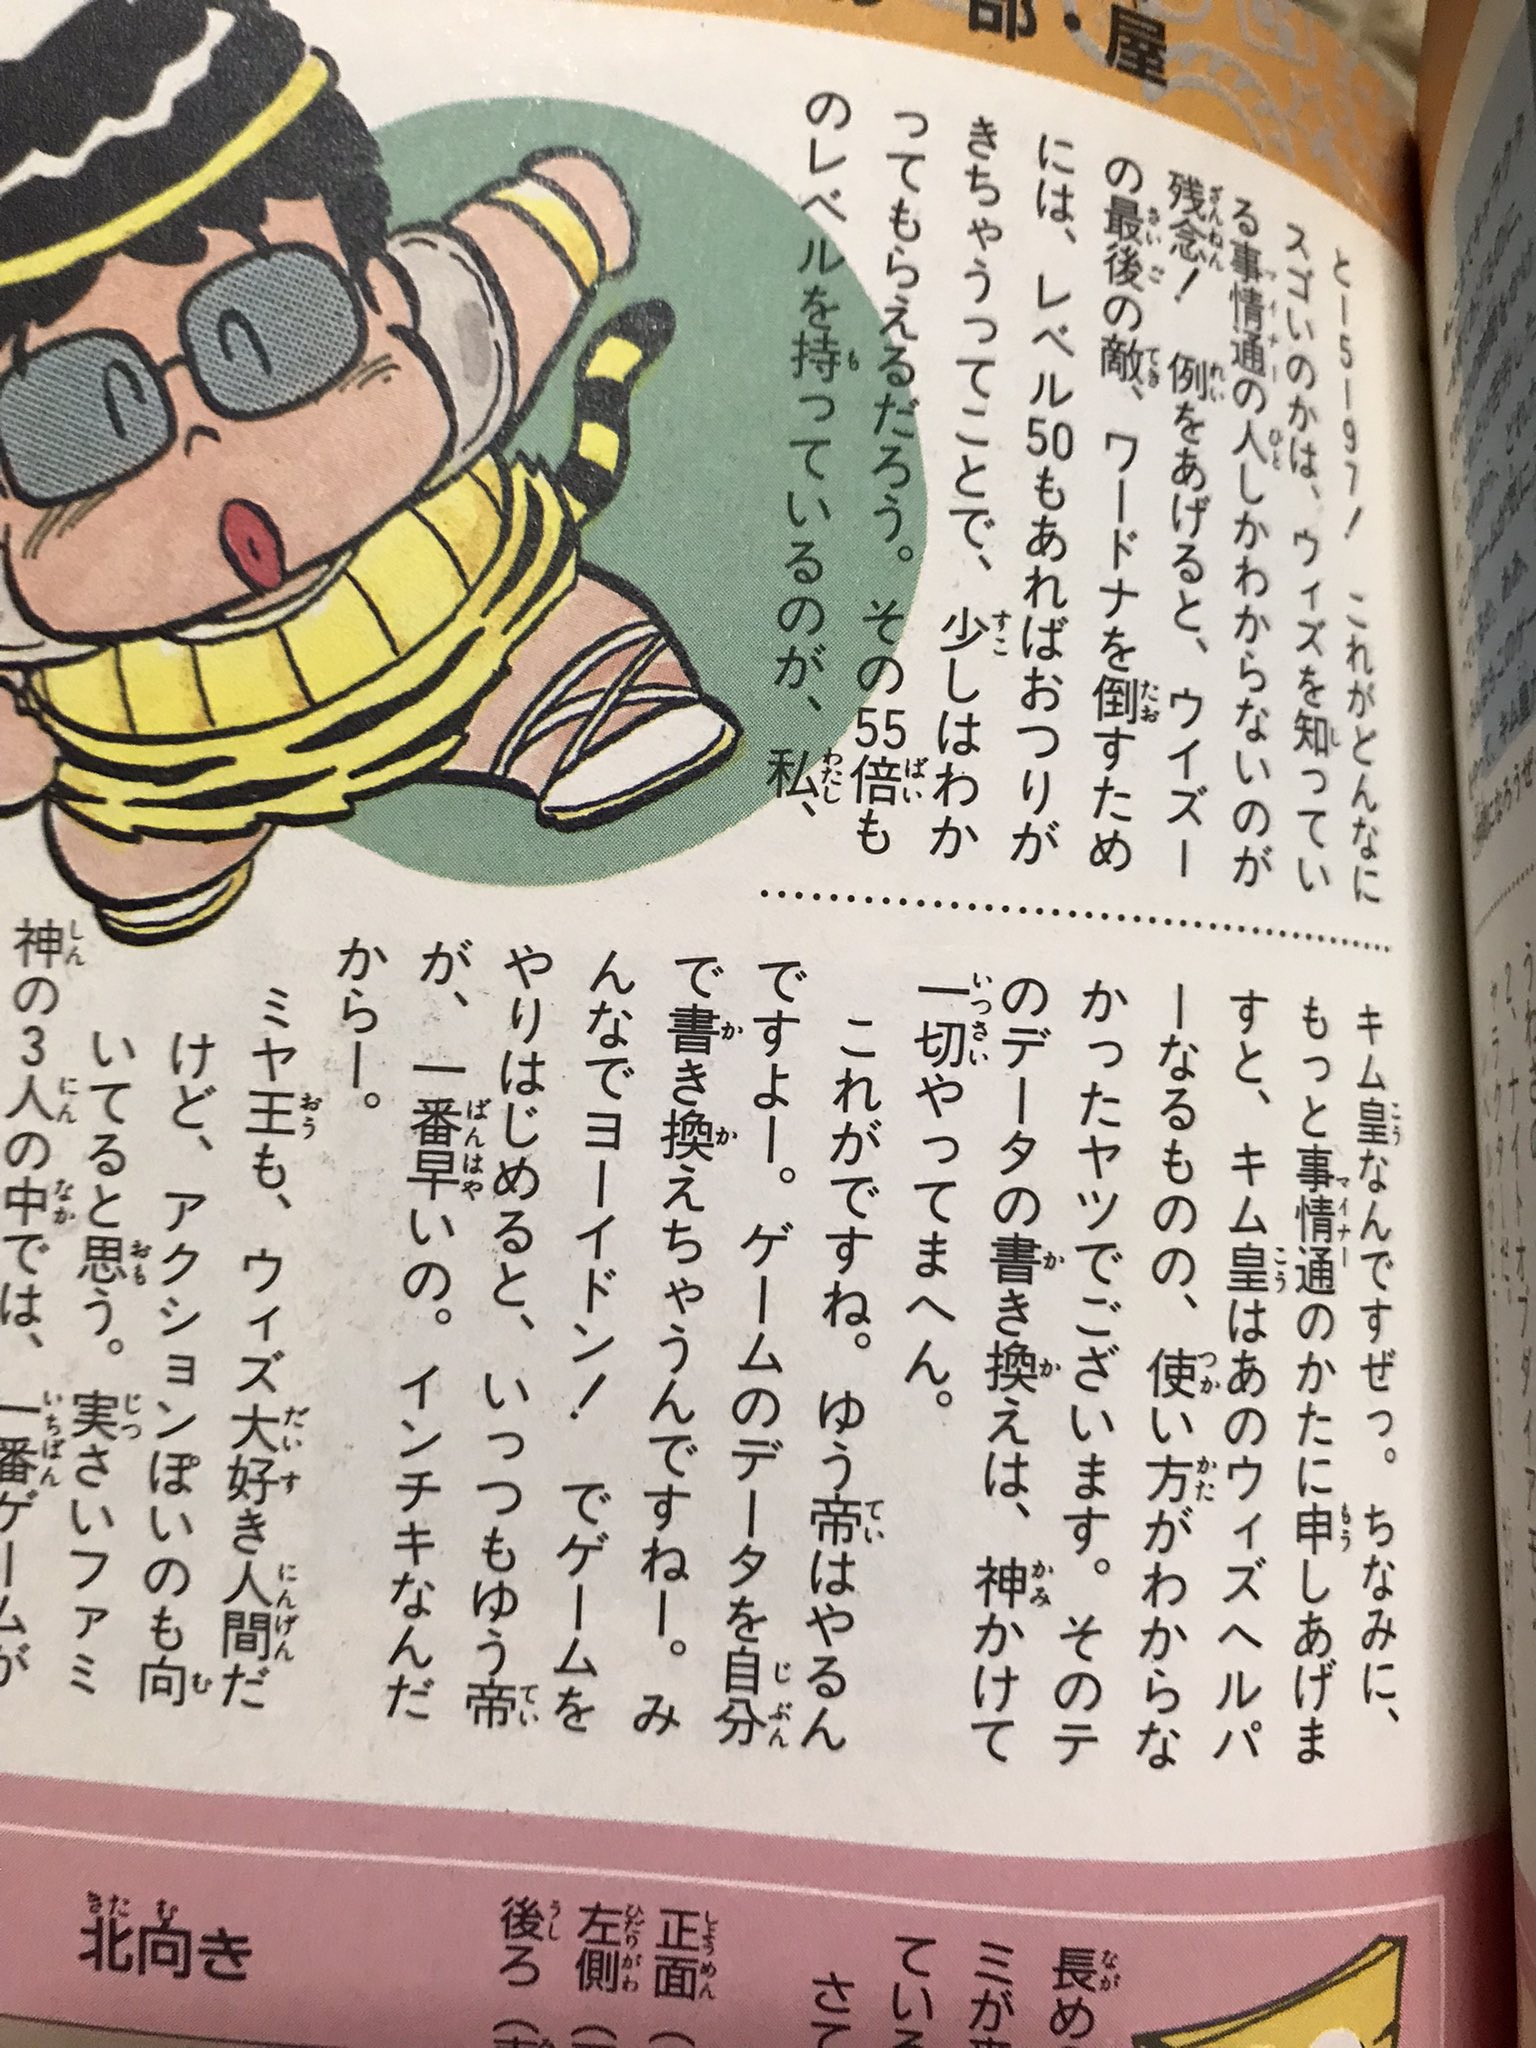 部・屋
と―5―97！　これがどんなに
スゴいのかは、ウィズを知ってい
る事情通の人しかわからないのが
残念！　例をあげると、ウィズー
の最後の敵、ワードナを倒すため
には、レベル50もあればおつりが
きちゃうってことで、少しはわか
ってもらえるだろう。その55倍も
のレベルを持っているのが、私、
キム皇なんですぜっ。ちなみに、
もっと事情通のかたに申しあげま
すと、キム皇はあのウィズヘルパ
ーなるものの、使い方がわからな
かったヤツでございます。そのテ
のデータの書き換えは、神かけて
一切やってまへん。
これがですね。ゆう帝はやるん
ですよー。ゲームのデータを自分
で書き換えちゃうんですねー。み
んなでヨーイドン！　でゲームを
やりはじめると、いっつもゆう帝
が、一番早いの。インチキなんだ
からー。
ミヤ王も、ウィズ大好き人間だ
けど、アクションぽいのも向
いてると思う。実さいファミ
神の3人の中では、一番ゲームが
長め
ミが
てい
さて
正面（
左側（
後ろ（
北向き